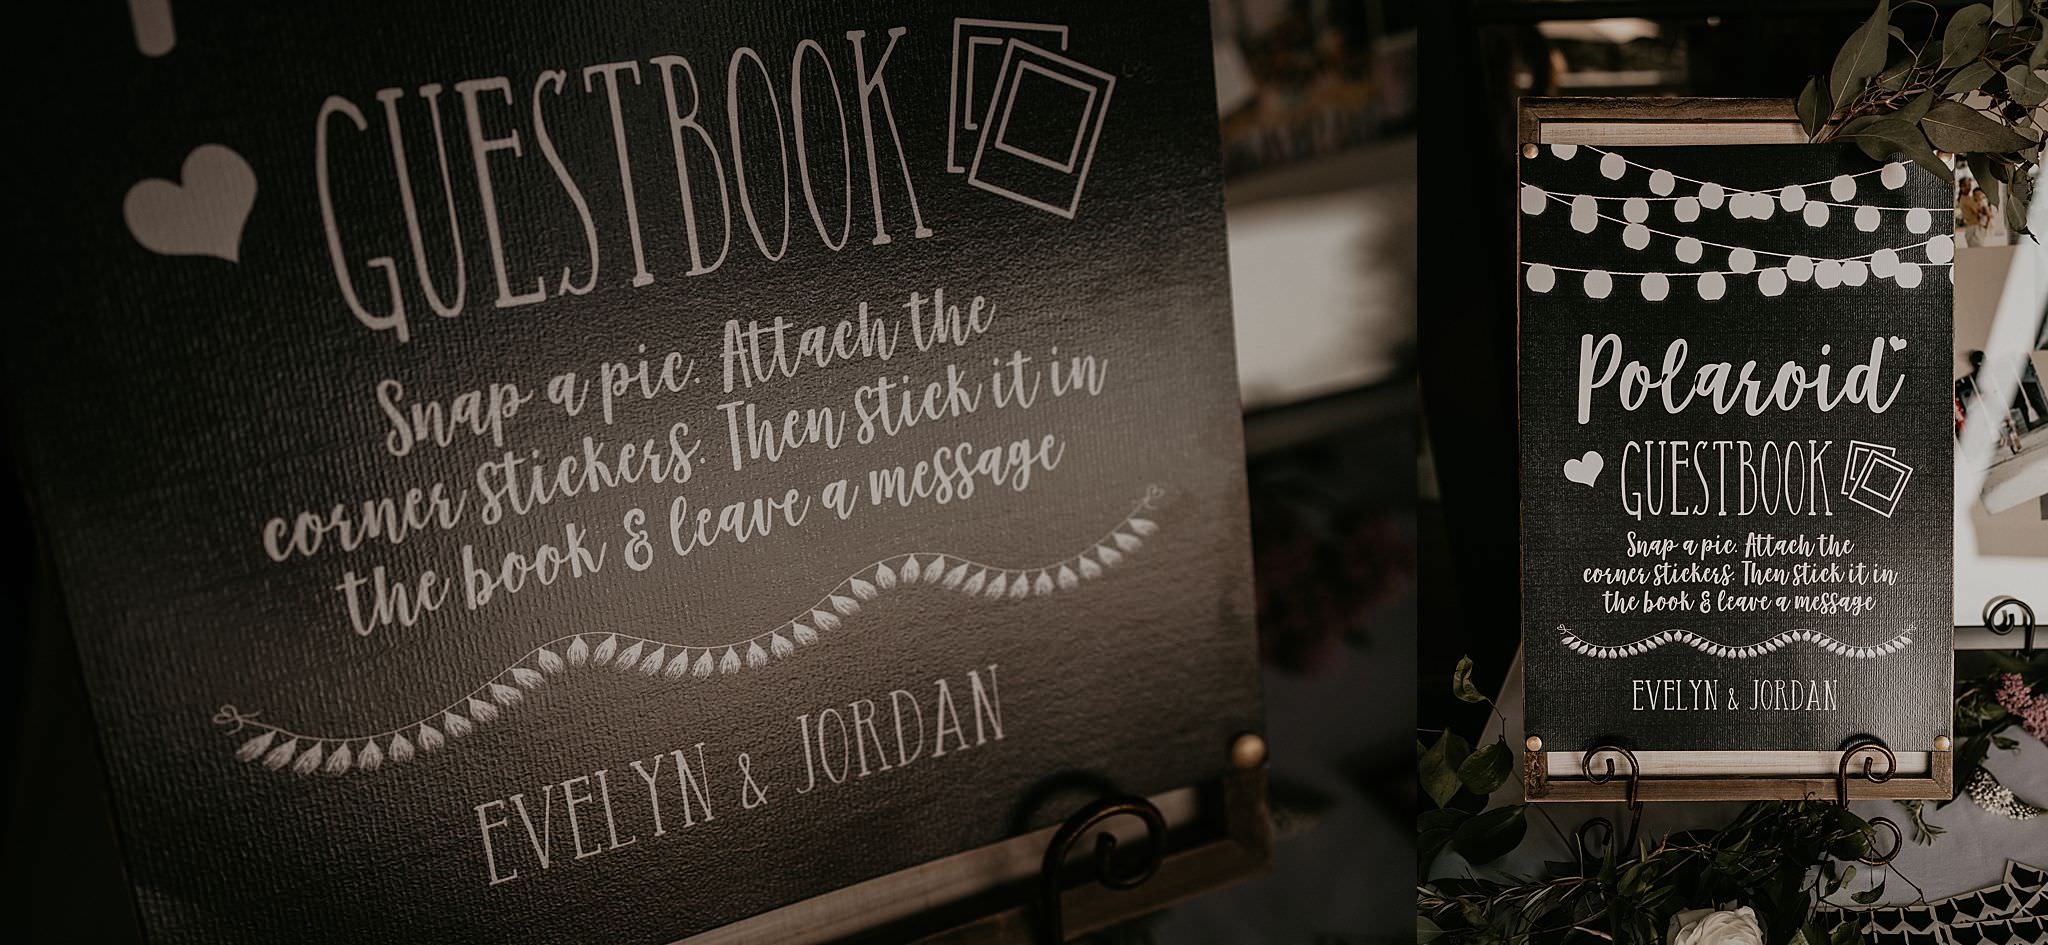 GUESTBOOK
Snap a pic. Attach the
corner stickers. Then stick it in
the book & leave a message
EVELYN & JORDAN
Polaroid
GUESTBOOK
Snap a pic. Attach the
corner stickers. Then stick it in
the book & leave a message
EVELYN & JORDAN